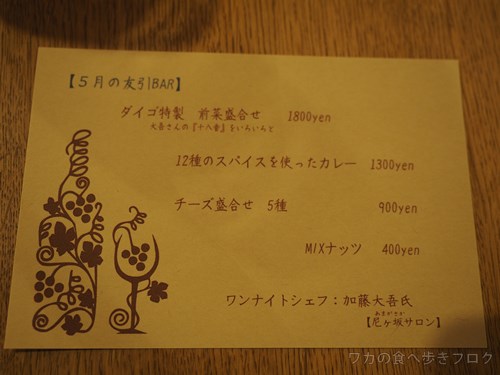 【５月の友引BAR】
ダイゴ特製　前菜盛合せ　1800yen
大吾さんの『十八番』をいろいろと
12種のスパイスを使ったカレー　1300yen
チーズ盛合せ　5種　900yen
MIXナッツ　400yen
ワンナイトシェフ：加藤大吾氏
あまがさか
【尼ヶ坂サロン】
ワカの食べ歩きブログ